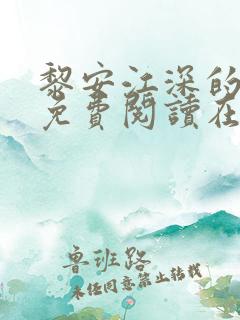 黎安江深的
免費閱讀在
魯班路
未经同意禁止转载